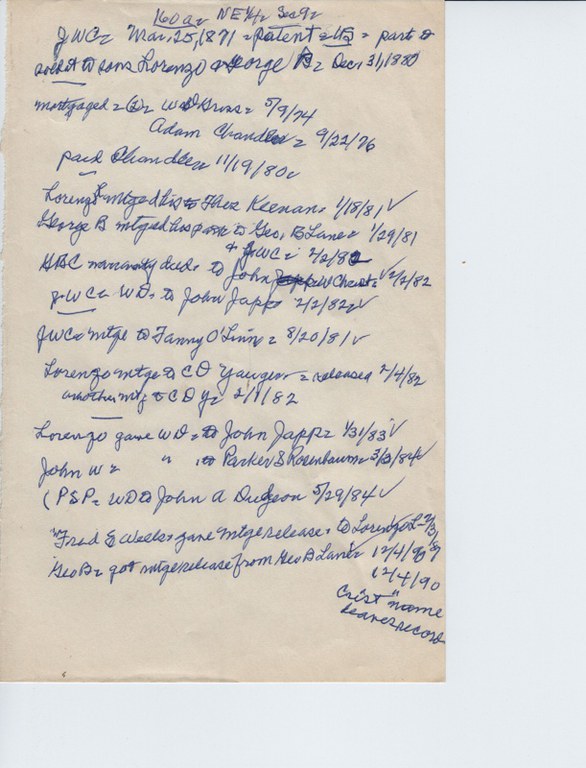 160 a = NE 1/4 = Sec 9 =
JWC = Mar. 25, 1871 = patent = US = part &
to sons Lorenzo & George B = Dec. 31, 1880
mortgaged = = W D Gross = 5/9/74
Adam Chandler = 9/22/76
paid Chandler = 11/19/80
Lorenzo L mtged his to Keenan = 1/18/81 ✓
George B mtged his part to Geo. B Lane = 1/29/81
+ JWC = 2/2/82
warranty deed = to John W Christ = ✓ 2/2/82
JWC = WD = to John Japp 2/2/82 = ✓
JWC = mtge to Fanny O'Linn = 8/20/81 ✓
Lorenzo mtge to C D Yauger = released 2/4/82
another mtg to C D Y = 2/1/82
Lorenzo gave WD = to John Japp = 1/31/83 ✓
John W = " , to Parker S Rosenbaum = 3/3/84 ✓
( P S P = WD to John A Dudgeon 5/29/84 ✓
"Fred E Weeks = gave mtge release = to Lorenzo L =
Geo B = got mtge release from Geo B Lane = 12/4/90
12/4/90
Crist " name
leaves record